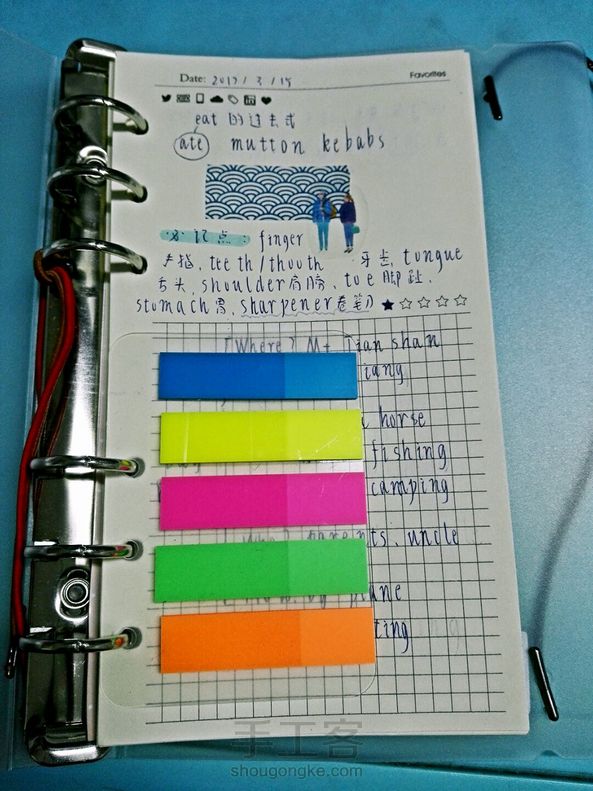 Date: 2017 / 3 / 15
Favorites
eat 的过去式
ate mutton kebabs
必记点: finger
手指, teeth/thouth 牙齿, tongue
舌头, shoulder 肩膀, toe 脚趾,
stomach 胃, sharpener 卷笔刀
[Where] Mt Tian shan
iang
horse
fishing
camping
parents, uncle
by plane
ting
手工客
shougongke.com